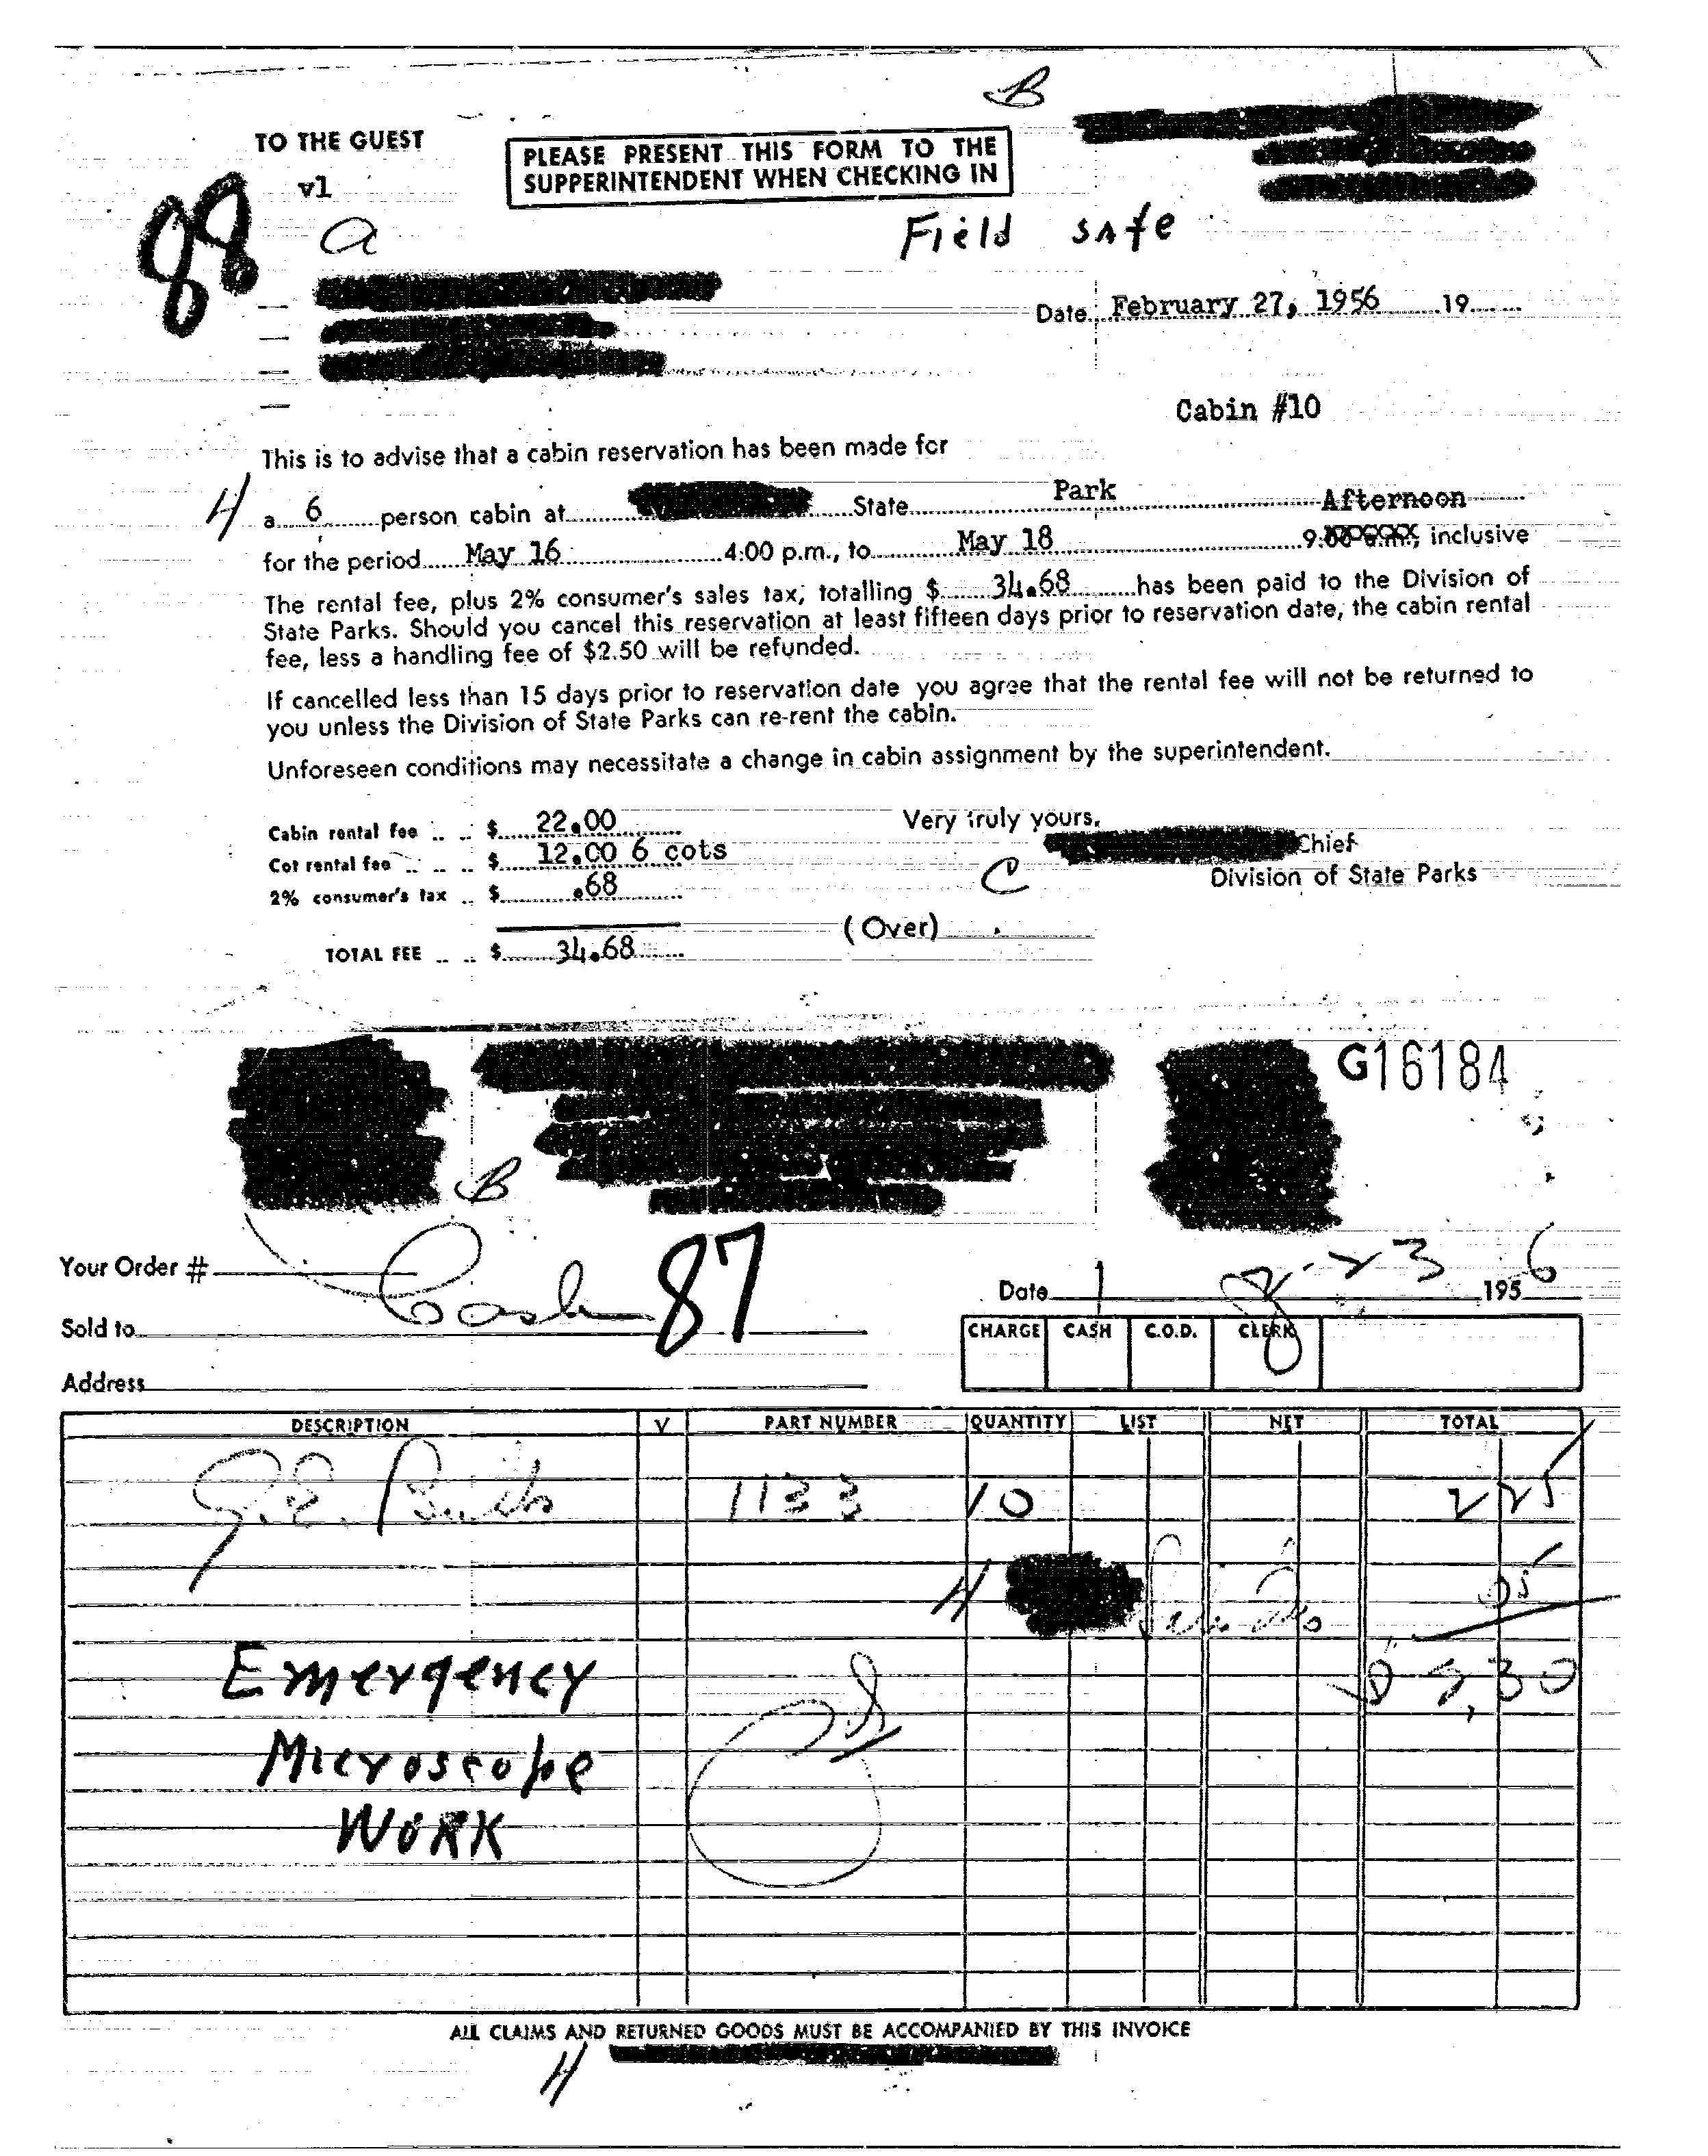 B
TO THE GUEST
v1
PLEASE PRESENT THIS FORM TO THE
SUPPERINTENDENT WHEN CHECKING IN
88
a
Field safe
Date February 27, 1956 19
Cabin #10
This is to advise that a cabin reservation has been made for
H a 6 person cabin at State Park Afternoon
for the period May 16 4:00 p.m., to May 18 9:00 a.m., inclusive
The rental fee, plus 2% consumer's sales tax, totalling $ 34.68 has been paid to the Division of
State Parks. Should you cancel this reservation at least fifteen days prior to reservation date, the cabin rental
fee, less a handling fee of $2.50 will be refunded.
If cancelled less than 15 days prior to reservation date you agree that the rental fee will not be returned to
you unless the Division of State Parks can re-rent the cabin.
Unforeseen conditions may necessitate a change in cabin assignment by the superintendent.
Cabin rental fee .. .. $ 22.00
Very truly yours,
Cot rental fee .. .. .. $ 12.00 6 cots
Chief
2% consumer's tax .. $ .68
C
Division of State Parks
(Over)
TOTAL FEE .. .. $ 34.68
G16184
B
Your Order #
Cash 87
Date 8-23 1956
Sold to
CHARGE CASH C.O.D. CLERK
Address
DESCRIPTION V PART NUMBER QUANTITY LIST NET TOTAL
G.E. Bulbs 1133 10 2 25
H 05
2.30
Emergency
Microscope
Work
ALL CLAIMS AND RETURNED GOODS MUST BE ACCOMPANIED BY THIS INVOICE
H